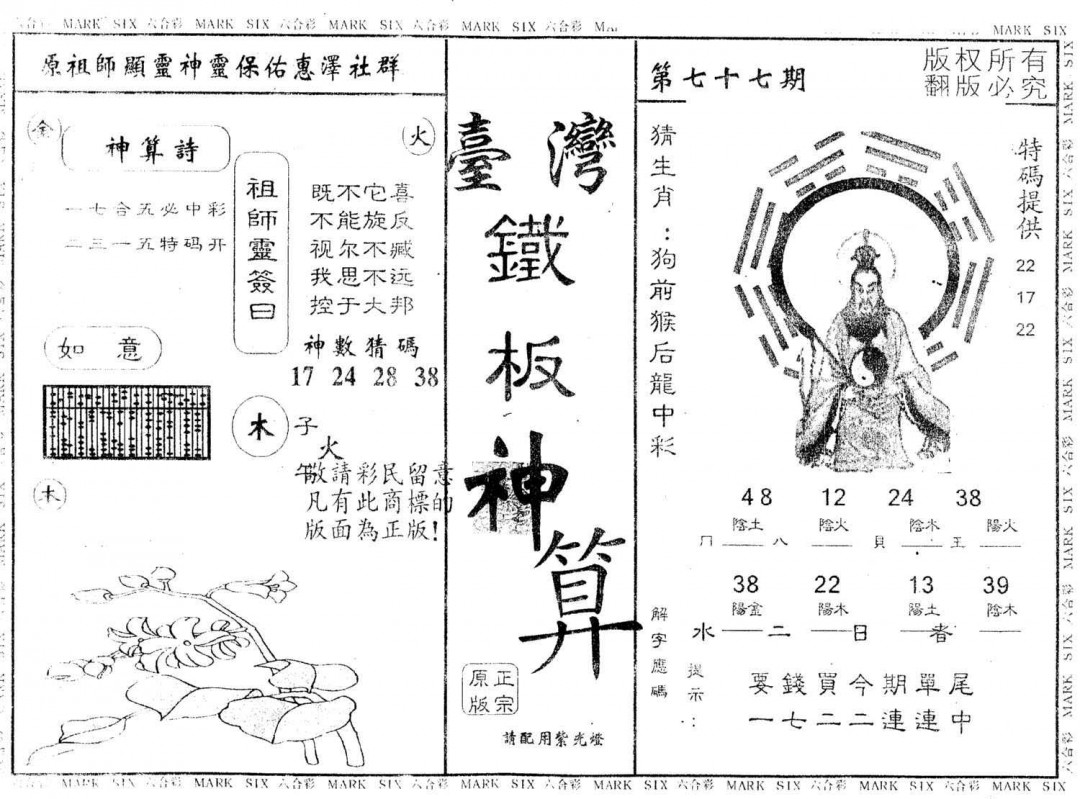 MARK SIX 六合彩 MARK SIX 六合彩 MARK SIX 六合彩 MARK SIX 六合彩 MARK SIX 六合彩
MARK SIX
原祖師顯靈神靈保佑惠澤社群
金
火
神算詩
一七合五必中彩
二三一五特码开
祖師靈簽曰
既不它喜
不能旋反
视尔不臧
我思不远
控于大邦
如意
神數猜碼
17 24 28 38
木
子
火
午
木
敬請彩民留意
凡有此商標的
版面為正版!
臺灣
鐵
板
神
算
正宗
原版
請配用紫光燈
第七十七期
版权所有
翻版必究
猜生肖:狗前猴后龍中彩
特碼提供
22
17
22
48 12 24 38
陰土 陰火 陰木 陽火
八 貝 王
38 22 13 39
陽金 陽木 陽土 陰木
水 二 日 者
解字應碼
提示:
要錢買今期單尾
一七二二連連中
MARK SIX 六合彩 MARK SIX 六合彩 MARK SIX 六合彩 MARK SIX 六合彩 MARK SIX 六合彩 MARK SIX 六合彩 MARK SIX 六合彩 MARK SIX